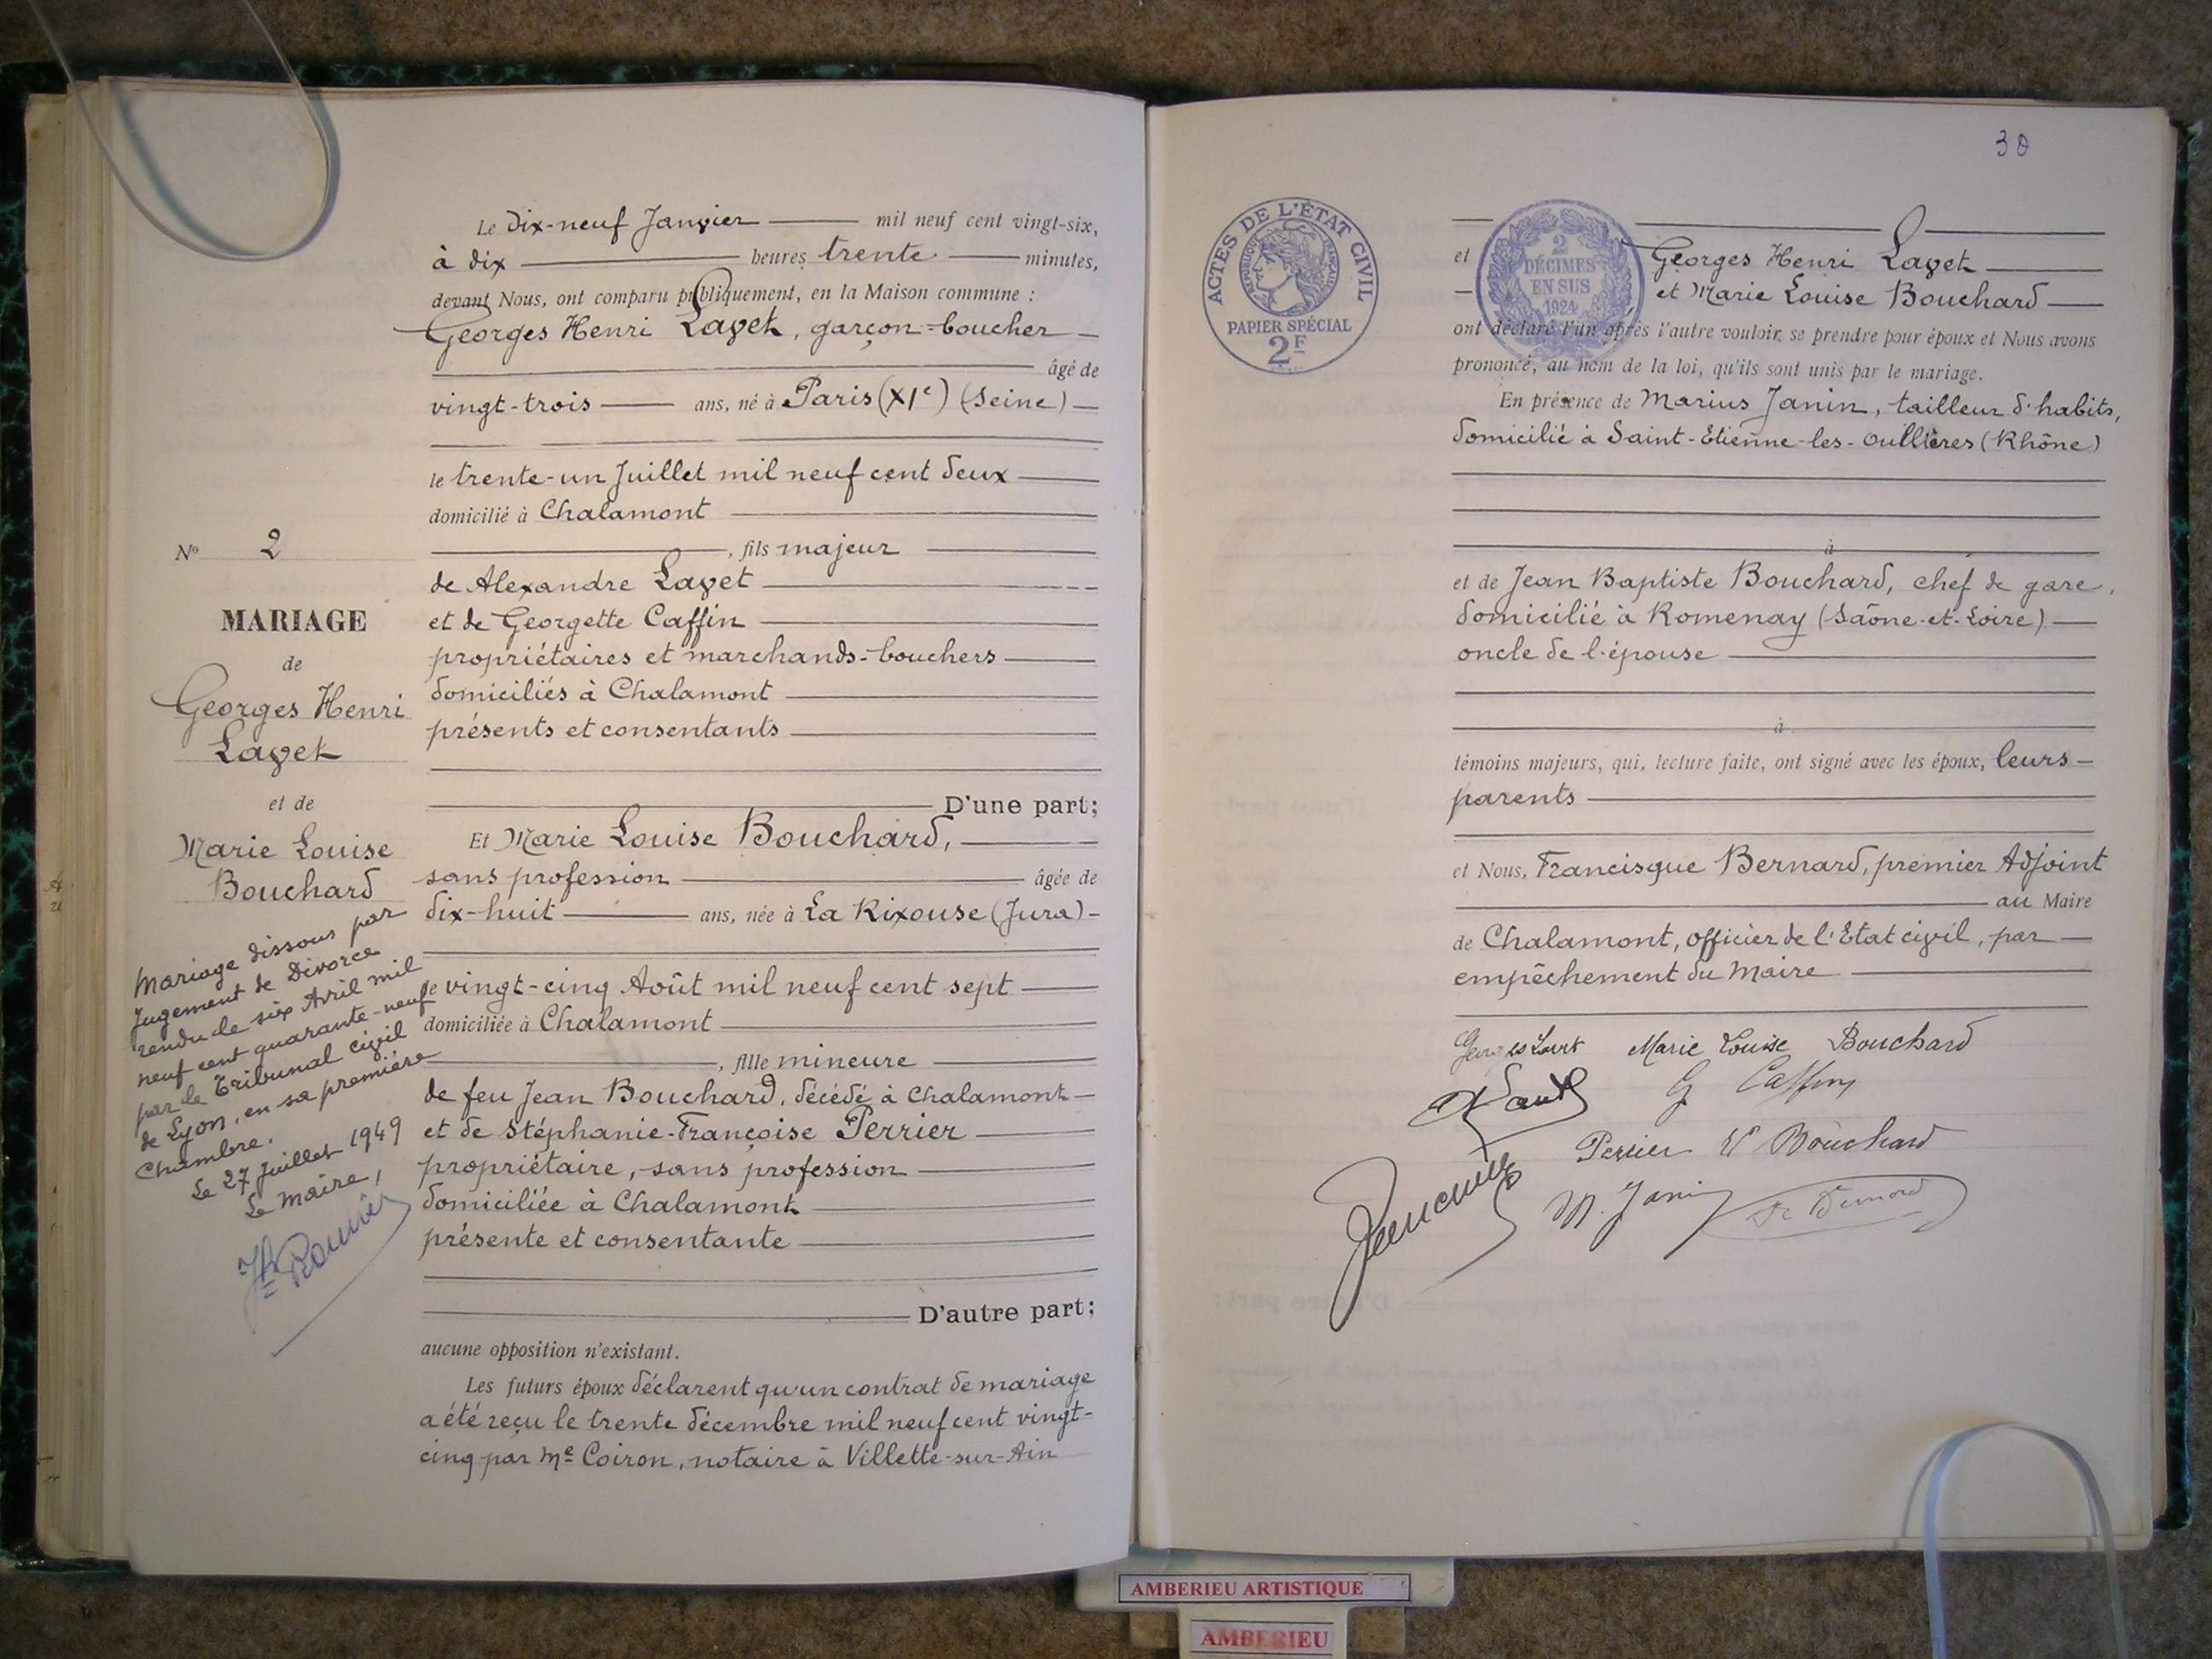 Le dix-neuf Janvier mil neuf cent vingt-six,
à dix heures trente minutes,
devant Nous, ont comparu publiquement, en la Maison commune :
Georges Henri Lavet, garçon-boucher
âgé de
vingt-trois ans, né à Paris (XIe) (Seine)
le trente-un Juillet mil neuf cent deux
domicilié à Chalamont
, fils majeur
de Alexandre Lavet
et de Georgette Caffin
propriétaires et marchands-bouchers
domiciliés à Chalamont
présents et consentants
D'une part;
Et Marie Louise Bouchard,
sans profession âgée de
dix-huit ans, née à La Rixouse (Jura)
le vingt-cinq Août mil neuf cent sept
domiciliée à Chalamont
, fille mineure
de feu Jean Bouchard, décédé à Chalamont
et de Stéphanie-Françoise Perrier
propriétaire, sans profession
domiciliée à Chalamont
présente et consentante
D'autre part;
aucune opposition n'existant.
Les futurs époux déclarent qu'un contrat de mariage
a été reçu le trente décembre mil neuf cent vingt-
cinq par Me Coiron, notaire à Villette-sur-Ain
No 2
MARIAGE
de
Georges Henri
Lavet
et de
Marie Louise
Bouchard
Mariage dissous par
Jugement de Divorce
rendu le six Avril mil
neuf cent quarante-neuf
par le Tribunal civil
de Lyon, en sa première
Chambre.
Le 27 Juillet 1949
Le Maire,
30
ACTES DE L'ÉTAT CIVIL
RÉPUBLIQUE FRANÇAISE
PAPIER SPÉCIAL
2F
2
DÉCIMES
EN SUS
1924
et Georges Henri Lavet
et Marie Louise Bouchard
ont déclaré l'un après l'autre vouloir se prendre pour époux et Nous avons
prononcé, au nom de la loi, qu'ils sont unis par le mariage.
En présence de Marius Janin, tailleur d'habits,
domicilié à Saint-Etienne-les-Oullières (Rhône)
à
et de Jean Baptiste Bouchard, chef de gare,
domicilié à Romenay (Saône-et-Loire)
oncle de l'épouse
à
témoins majeurs, qui, lecture faite, ont signé avec les époux, leurs
parents
et Nous, Francisque Bernard, premier Adjoint
au Maire
de Chalamont, officier de l'Etat civil, par
empêchement du Maire
Marie Louise Bouchard
G Caffin
Perrier Bouchard
M. Janin
AMBERIEU ARTISTIQUE
AMBERIEU